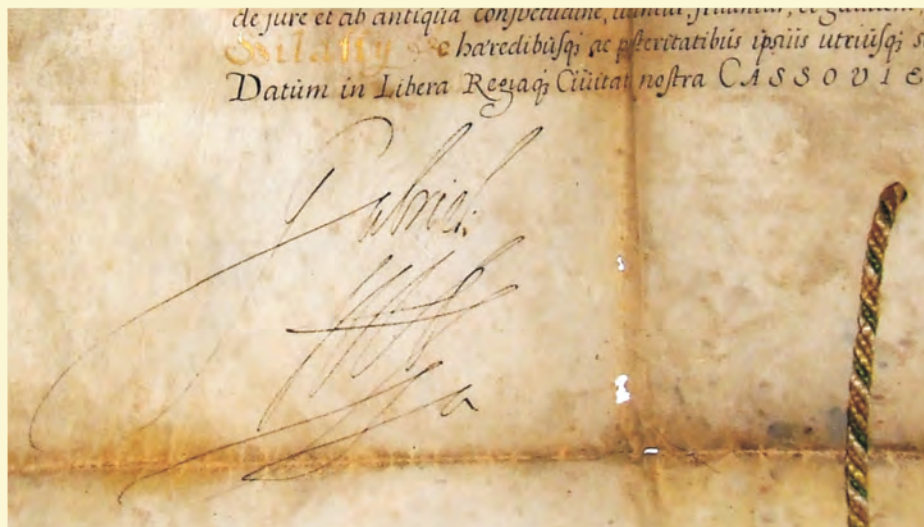 de jure et ab antiqua consvetudine, utuntur, fruuntur, et
hæredibusq; ac psteritatibus ipsius utriusq; s
Datum in Libera Regiaq; Ciuitat nostra CASSOVIE
Gabriel